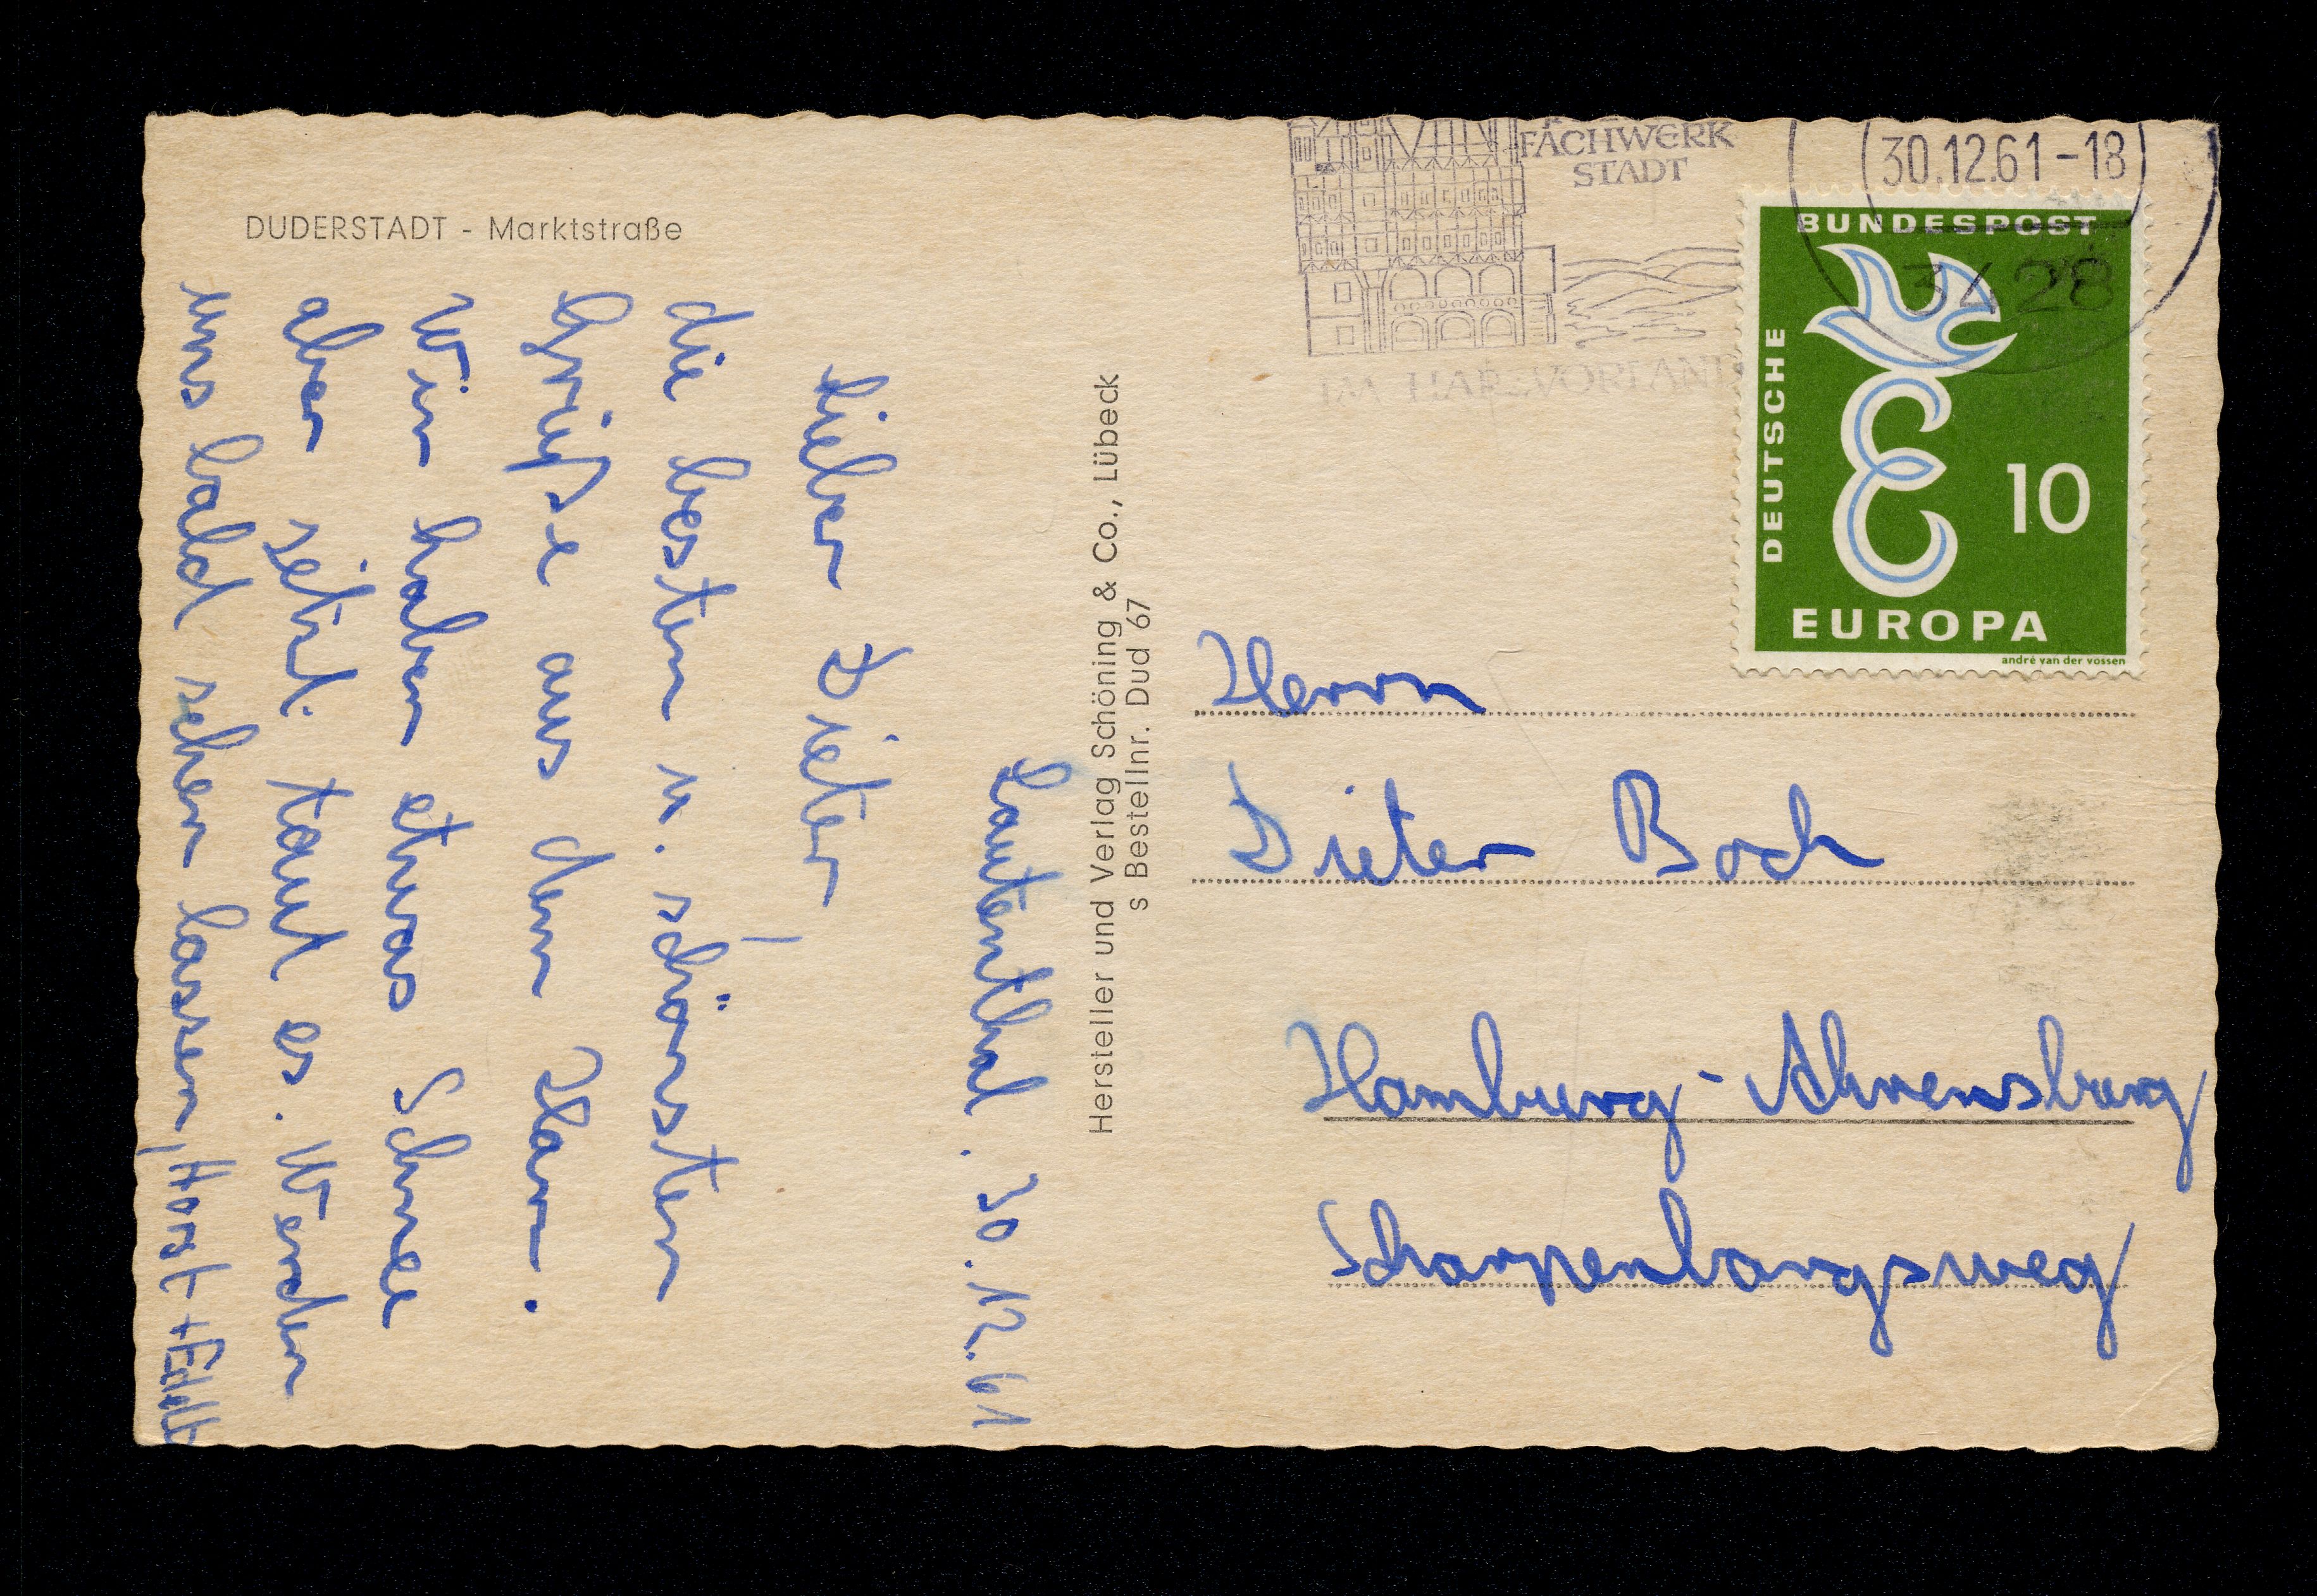 DUDERSTADT - Marktstraße
Lautenthal. 30.12.61
Lieber Dieter!
die besten u. schönsten
Grüße aus dem Harz.
Wir haben etwas Schnee
aber jetzt taut es. Werden
uns bald sehen lassen, Horst +
Hersteller und Verlag Schöning & Co., Lübeck
s Bestellnr. Dud 67
FACHWERK
STADT
IM HARZVORLAND
30.12.61-18
3428
DEUTSCHE
BUNDESPOST
10
EUROPA
andré van der vossen
Herrn
Dieter Boch
Hamburg-Ahrensburg
Scharpenbargsweg